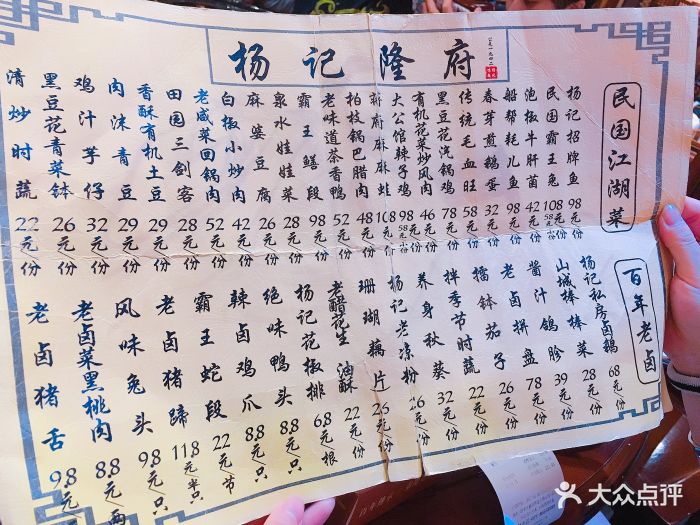 杨记隆府
民国江湖菜
杨记招牌鱼 98元/份
民国霸王兔 108元/份 58元/小份
泡椒牛肝菌 42元/份
船帮耗儿鱼 98元/份
春芽煎鹅蛋 32元/份
传统毛血旺 58元/份
黑豆花汽锅鸡 78元/份
有机花菜炒风肉 46元/份
大公馆辣子鸡 98元/份 58元/小份
新府麻麻蛙 108元/份
柏枝锅巴腊肉 48元/份
老味道茶香鸭 52元/份
霸王鳝段 98元/份
泉水娃娃菜 28元/份
麻婆豆腐 26元/份
白椒小炒肉 42元/份
老咸菜回锅肉 52元/份
田园三剑客 28元/份
香酥有机土豆 29元/份
肉沫青豆 29元/份
鸡汁芋仔 32元/份
黑豆花青菜钵 26元/份
清炒时蔬 22元/份
百年老卤
杨记私房卤鹅 68元/份
山城棒棒菜 28元/份
酱汁鸽胗 39元/份
老卤拼盘 78元/份
擂钵茄子 26元/份
拌季节时蔬 22元/份
养身秋葵 32元/份
杨记老凉粉 26元/份
珊瑚藕片 26元/份
老醋花生 油酥 22元/份
杨记花椒排 6.8元/根
绝味鸭头 8.8元/只
辣卤鸡爪 8.8元/只
霸王蛇段 22元/节
老卤猪蹄 11.8元/半只
风味兔头 9.8元/只
老卤菜黑桃肉 8.8元/两
老卤猪舌 9.8元
大众点评